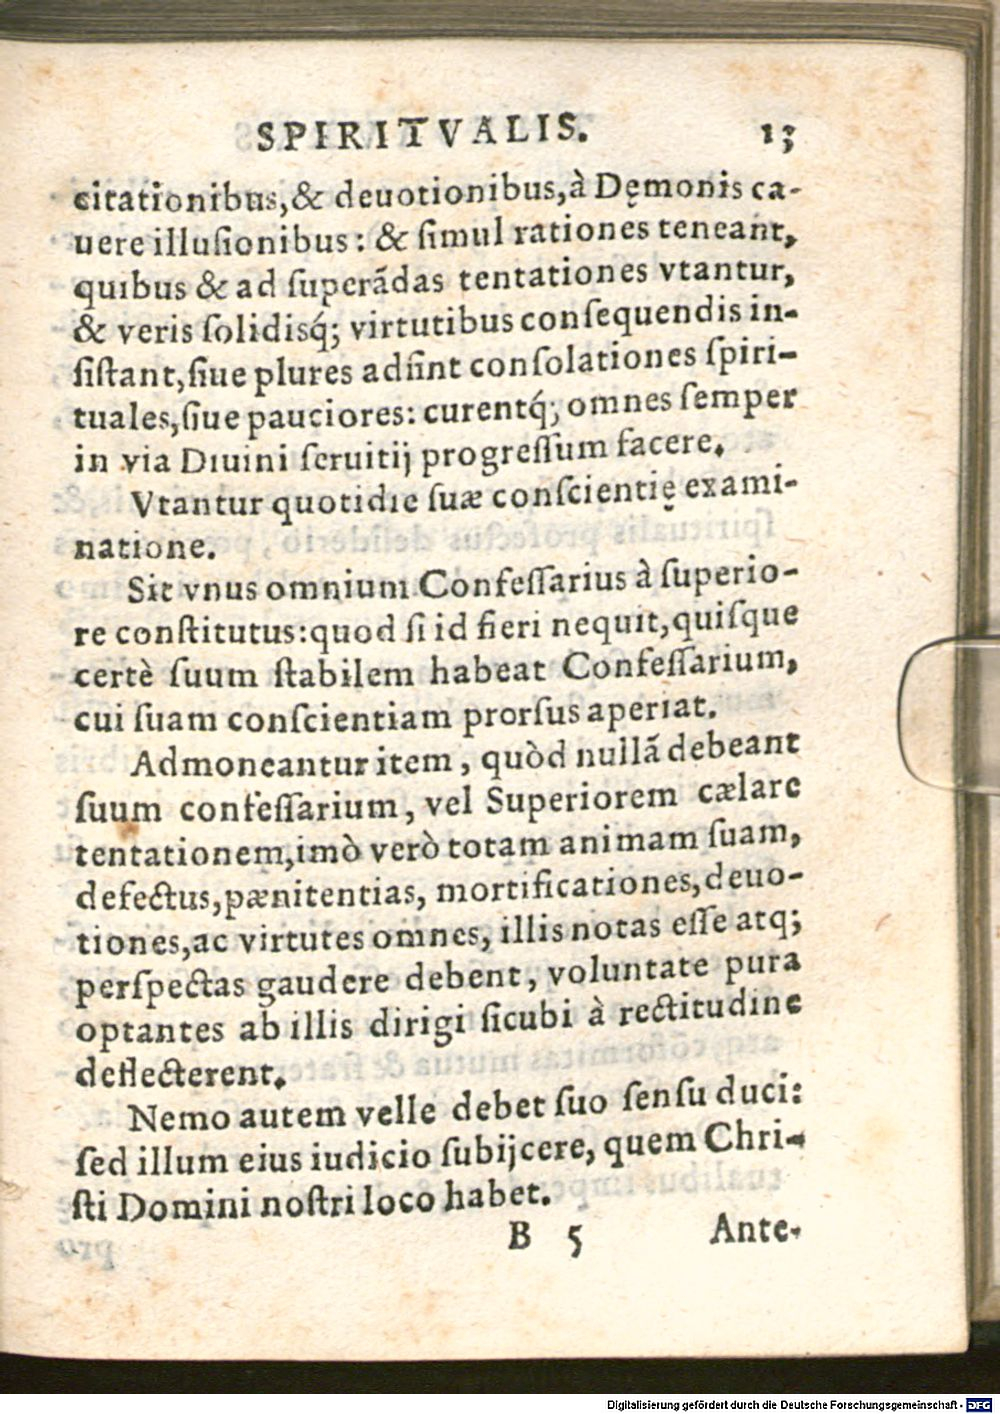 SPIRITVALIS. 13
citationibus, & deuotionibus, à Dęmonis ca-
uere illuſionibus: & ſimul rationes teneant,
quibus & ad ſuperãdas tentationes vtantur,
& veris ſolidisq́; virtutibus conſequendis in-
ſiſtant, ſiue plures adſint conſolationes ſpiri-
tuales, ſiue pauciores: curentq́; omnes ſemper
in via Diuini ſeruitij progreſſum facere.
Vtantur quotidie ſuæ conſcientię exami-
natione.
Sit vnus omnium Confeſſarius à ſuperio-
re conſtitutus: quod ſi id fieri nequit, quiſque
certè ſuum ſtabilem habeat Confeſſarium,
cui ſuam conſcientiam prorſus aperiat.
Admoneantur item, quòd nullã debeant
ſuum confeſſarium, vel Superiorem cælare
tentationem, imò verò totam animam ſuam,
defectus, pænitentias, mortificationes, deuo-
tiones, ac virtutes omnes, illis notas eſſe atq;
perſpectas gaudere debent, voluntate pura
optantes ab illis dirigi ſicubi à rectitudine
deflecterent.
Nemo autem velle debet ſuo ſenſu duci:
ſed illum eius iudicio ſubijcere, quem Chri-
ſti Domini noſtri loco habet.
B 5 Ante-
Digitalisierung gefördert durch die Deutsche Forschungsgemeinschaft - DFG